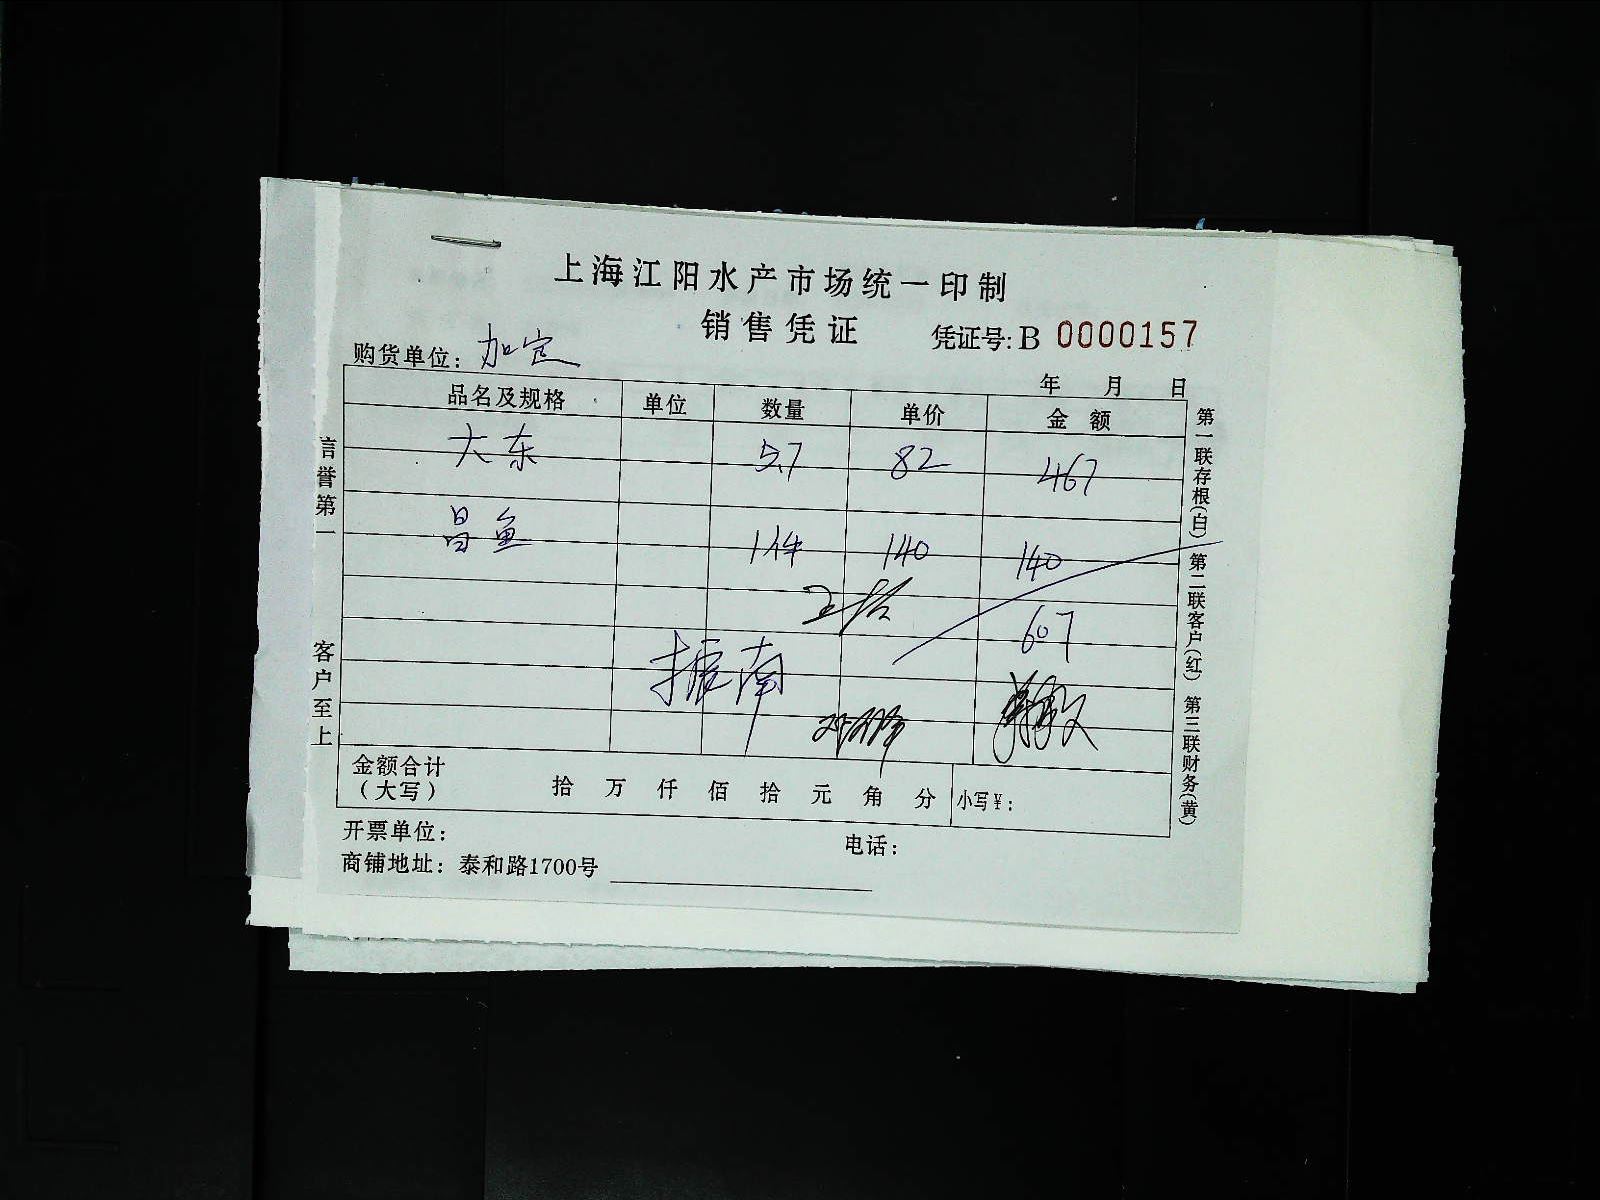 上海江阳水产市场统一印制
销售凭证 凭证号: B 0000157
购货单位: 加定
年 月 日
品名及规格 单位 数量 单价 金额
大东 5.7 82 467
昌鱼 1件 140 140
607
振南
金额合计(大写) 拾 万 仟 佰 拾 元 角 分 小写¥:
开票单位: 电话:
商铺地址: 泰和路1700号
言誉第一
客户至上
第一联存根(白) 第二联客户(红) 第三联财务(黄)